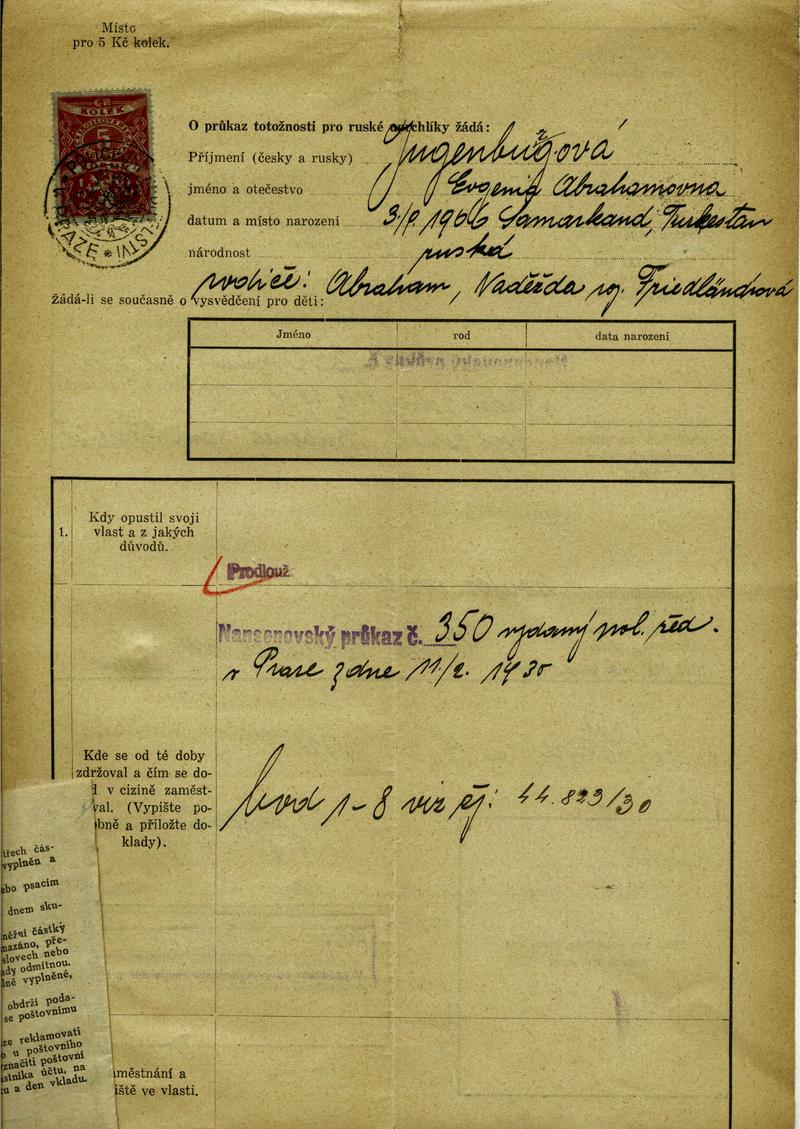 Místo
pro 5 Kč kolek.
KOLEK
5
O průkaz totožnosti pro ruské uprchlíky žádá:
Příjmení (česky a rusky) Jugenburgová
jméno a otečestvo Evgenia Abrahamovna
datum a místo narození 3/8. 1906 Samarkand, Turkestan
národnost ruská
rodiče: Abraham, Naděžda roz. Friedländrová
Žádá-li se současně o vysvědčení pro děti:
Jméno rod data narození
1. Kdy opustil svoji
vlast a z jakých
důvodů.
Prodlouž
Nansenovský průkaz č. 350 vydaný pol. řed.
v Praze z dne 11/2. 1930
Kde se od té doby
zdržoval a čím se do-
l v cizině zaměst-
val. (Vypište po-
bně a přiložte do-
klady).
bod 1-8 viz čj: 44.823/30
třech čás-
vyplněn a
ebo psacím
dnem sku-
něžní částky
mazáno, pře-
slovech nebo
ady odmítnou.
lně vyplněné,
obdrží poda-
se poštovnímu
ze reklamovati
o u poštovního
značiti poštovní
astníka účtu, na
u a den vkladu.
městnání a
iště ve vlasti.